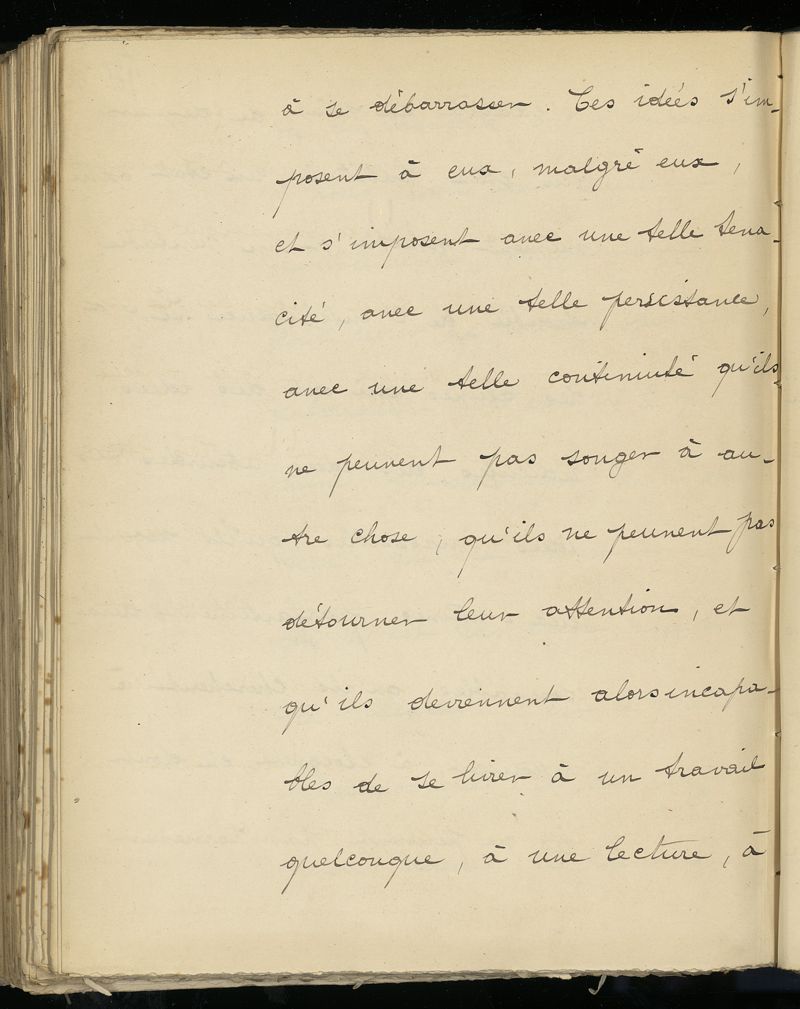 à se débarrasser. Ces idées s'im-
posent à eux, malgré eux,
et s'imposent avec une telle tena-
cité, avec une telle persistance,
avec une telle continuité qu'ils
ne peuvent pas songer à au-
tre chose, qu'ils ne peuvent pas
détourner leur attention, et
qu'ils deviennent alors incapa-
bles de se livrer à un travail
quelconque, à une lecture, à